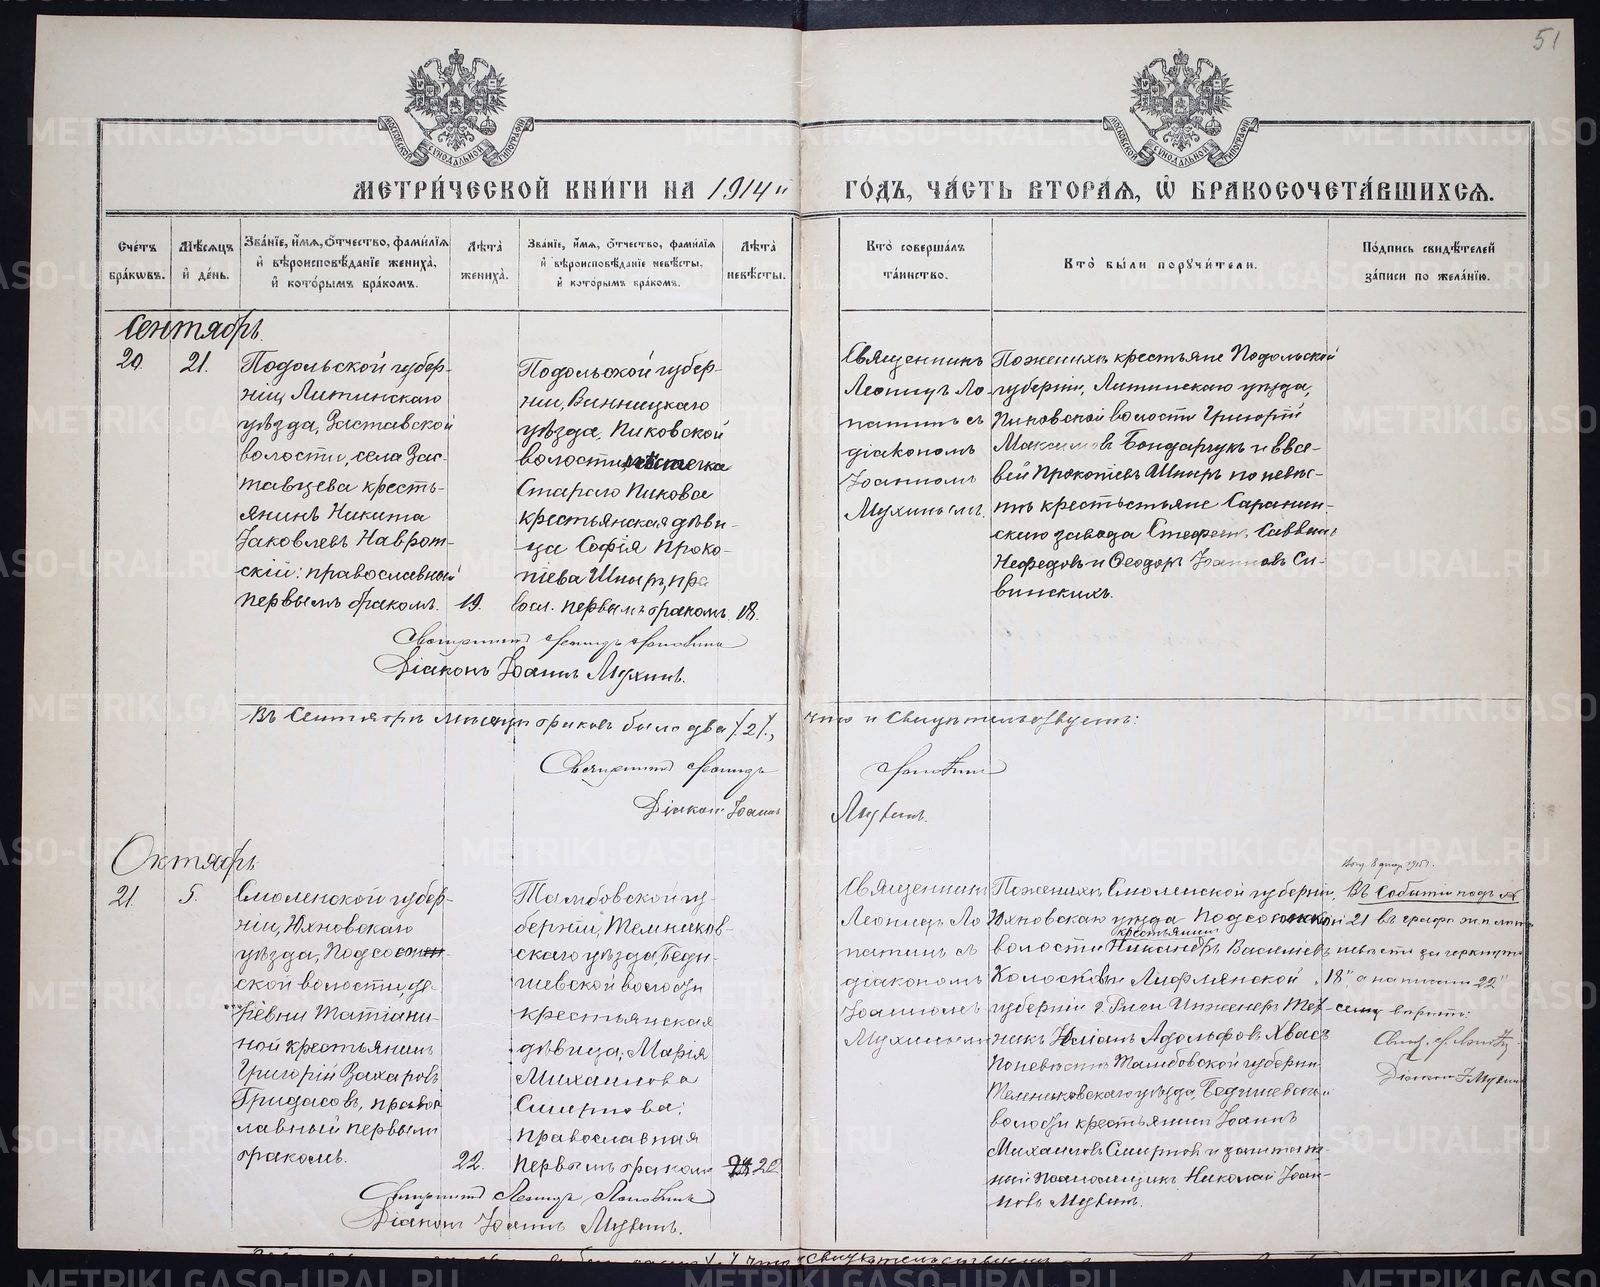 51
МЕТРИ́ЧЕСКОЙ КНИ́ГИ НА 1914й ГО́ДЪ, ЧА́СТЬ ВТОРА́Я, Ѡ БРАКОСОЧЕТА́ВШИХСЯ.
Сче́тъ бра́кѡвъ.
Мѣ́сяцъ и де́нь.
Зва́нїе, и́мя, ѻ́тчество, фами́лїя и вѣроисповѣ́данїе жениха̀, и кото́рымъ бра́комъ.
Лѣ́та жениха̀.
Зва́нїе, и́мя, ѻ́тчество, фами́лїя и вѣроисповѣ́данїе невѣ́сты, и кото́рымъ бра́комъ.
Лѣ́та невѣ́сты.
Кто̀ соверша́лъ та́инство.
Кто̀ бы́ли поручи́тели.
По́дпись свидѣ́телей за́писи по жела́нїю.
Сентябрь
20.
21.
Подольской губер-
нии Литинскаго
уѣзда, Заставской
волости, села Зас-
тавцева кресть-
янинъ Никита
Іаковлевъ Наврот-
скій: православный
первымъ бракомъ.
19.
Подольской губер-
нии, Винницкаго
уѣзда, Пиковской
волости, мѣстечка
Стараго Пикова
крестьянская дѣви-
ца Софія Проко-
піева Шнырь, пра
восл. первымъ бракомъ
18.
Священникъ
Леонидъ Ло-
патинъ съ
діакономъ
Іоанномъ
Мухинымъ.
По женихѣ крестьяне Подольской
губерніи, Литинскаго уѣзда,
Пиковской волости Григорій
Максимовъ Бондарчукъ и Евсе-
вій Прокопіевъ Шнырь по невѣс-
тѣ крестьяне Саранин-
скаго завода Стефанъ Саввинъ
Нефедовъ и Ѳеодоръ Іоанновъ Си-
винскихъ.
Священникъ Леонидъ Лопатинъ
Діаконъ Іоаннъ Мухинъ.
Въ Сентябрѣ мѣсяцѣ браковъ было два /.2./., что и свидѣтельствуемъ:
Священникъ Леонидъ Лопатинъ
Діаконъ Іоаннъ Мухинъ.
Октябрь
21.
5.
Смоленской губер-
ніи, Юхновскаго
уѣзда, Подсосен-
ской волости, де-
ревни
ной крестьянинъ
Григорій Захаровъ
Гридасовъ, правос
лавный первымъ
бракомъ.
22.
Тамбовской гу-
берніи, Темников-
скаго уѣзда,
волости
крестьянская
дѣвица, Марія
Михаилова
Смирнова;
православная
первымъ бракомъ
22
Священникъ
Леонидъ Ло
патинъ съ
діакономъ
Іоанномъ
Мухинымъ
По женихѣ Смоленской губерніи,
Юхновскаго уѣзда Подсосенской
крестьянин
волости Никандръ Василіевъ
Колосковъ и Лифлянской
губерніи г. Риги Инженеръ Тех-
никъ Адольфовъ
По невѣстѣ Тамбовской губерніи
Темниковскаго уѣзда,
волости крестьянинъ Іоаннъ
Михаиловъ Смирновъ и
ный псаломщикъ Николай Іоан-
новъ Мухинъ.
1915г.
Въ событіи подъ №
21 въ графѣ
невѣсты зачеркнуто
"18", а написано "22"
вѣрить:
Свящ. Л. Лопатинъ
Діаконъ І. Мухинъ
Священникъ Леонидъ Лопатинъ
Діаконъ Іоаннъ Мухинъ.